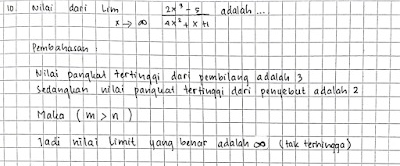 10. Nilai dari Lim 2x³ - 5 adalah ...
x → ∞ 4x² + x + 1
Pembahasan :
Nilai pangkat tertinggi dari pembilang adalah 3
Sedangkan nilai pangkat tertinggi dari penyebut adalah 2
Maka (m > n)
Jadi nilai limit yang benar adalah ∞ (tak terhingga)